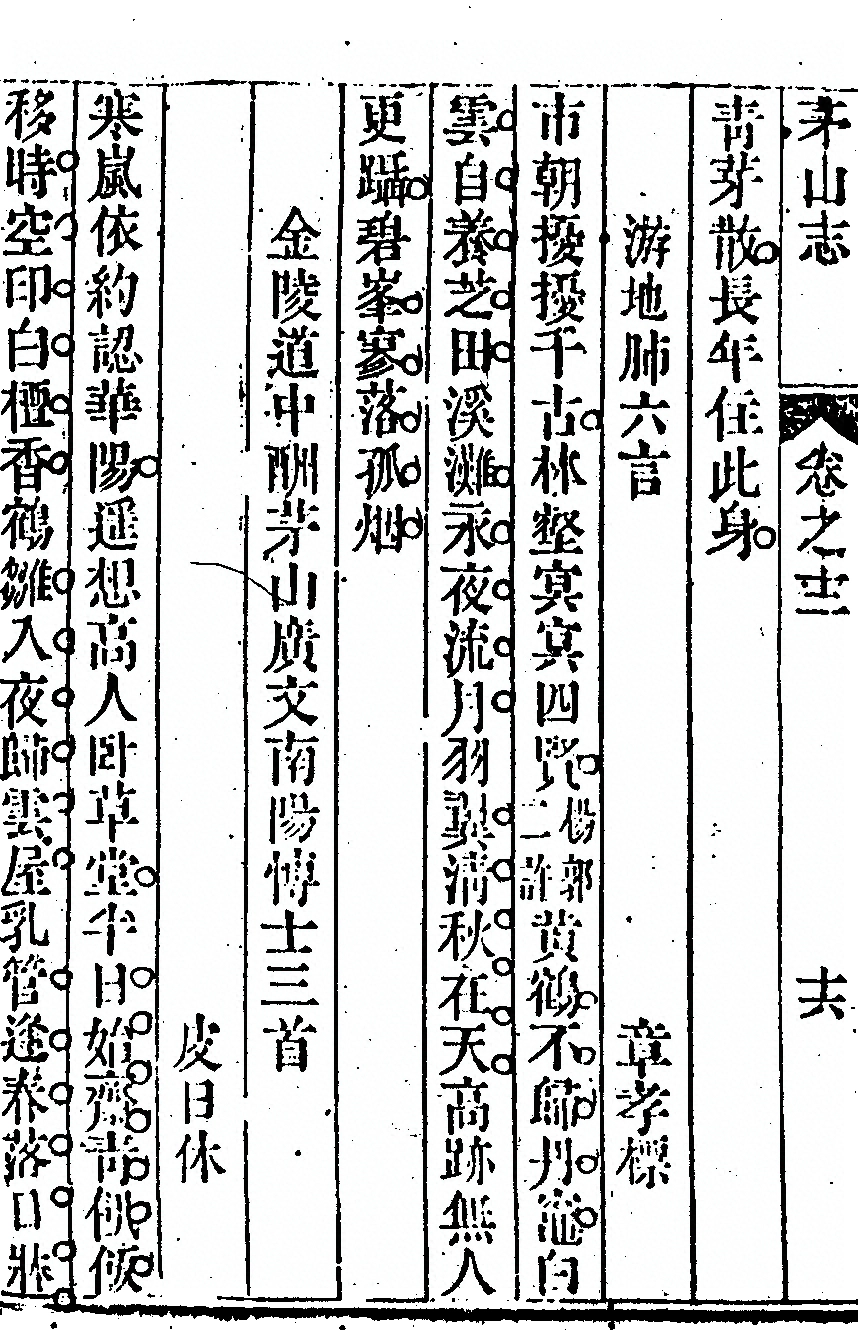 茅山志 卷之十三 十六
青芽散長年任此身
游地肺六言 章孝標
市朝擾擾千古林壑冥冥四賢楊郭二許黄鶴不歸丹竈白
雲自養芝田溪灘永夜流月羽翼清秋在天高跡無人
更躡碧峯寥落孤烟
金陵道中酬茅山廣文南陽博士三首
皮日休
寒嵐依約認華陽遥想高人卧草堂半日始齋青䭀飯
移時空印白檀香鶴雛入夜歸雲屋乳管逢春落日牀